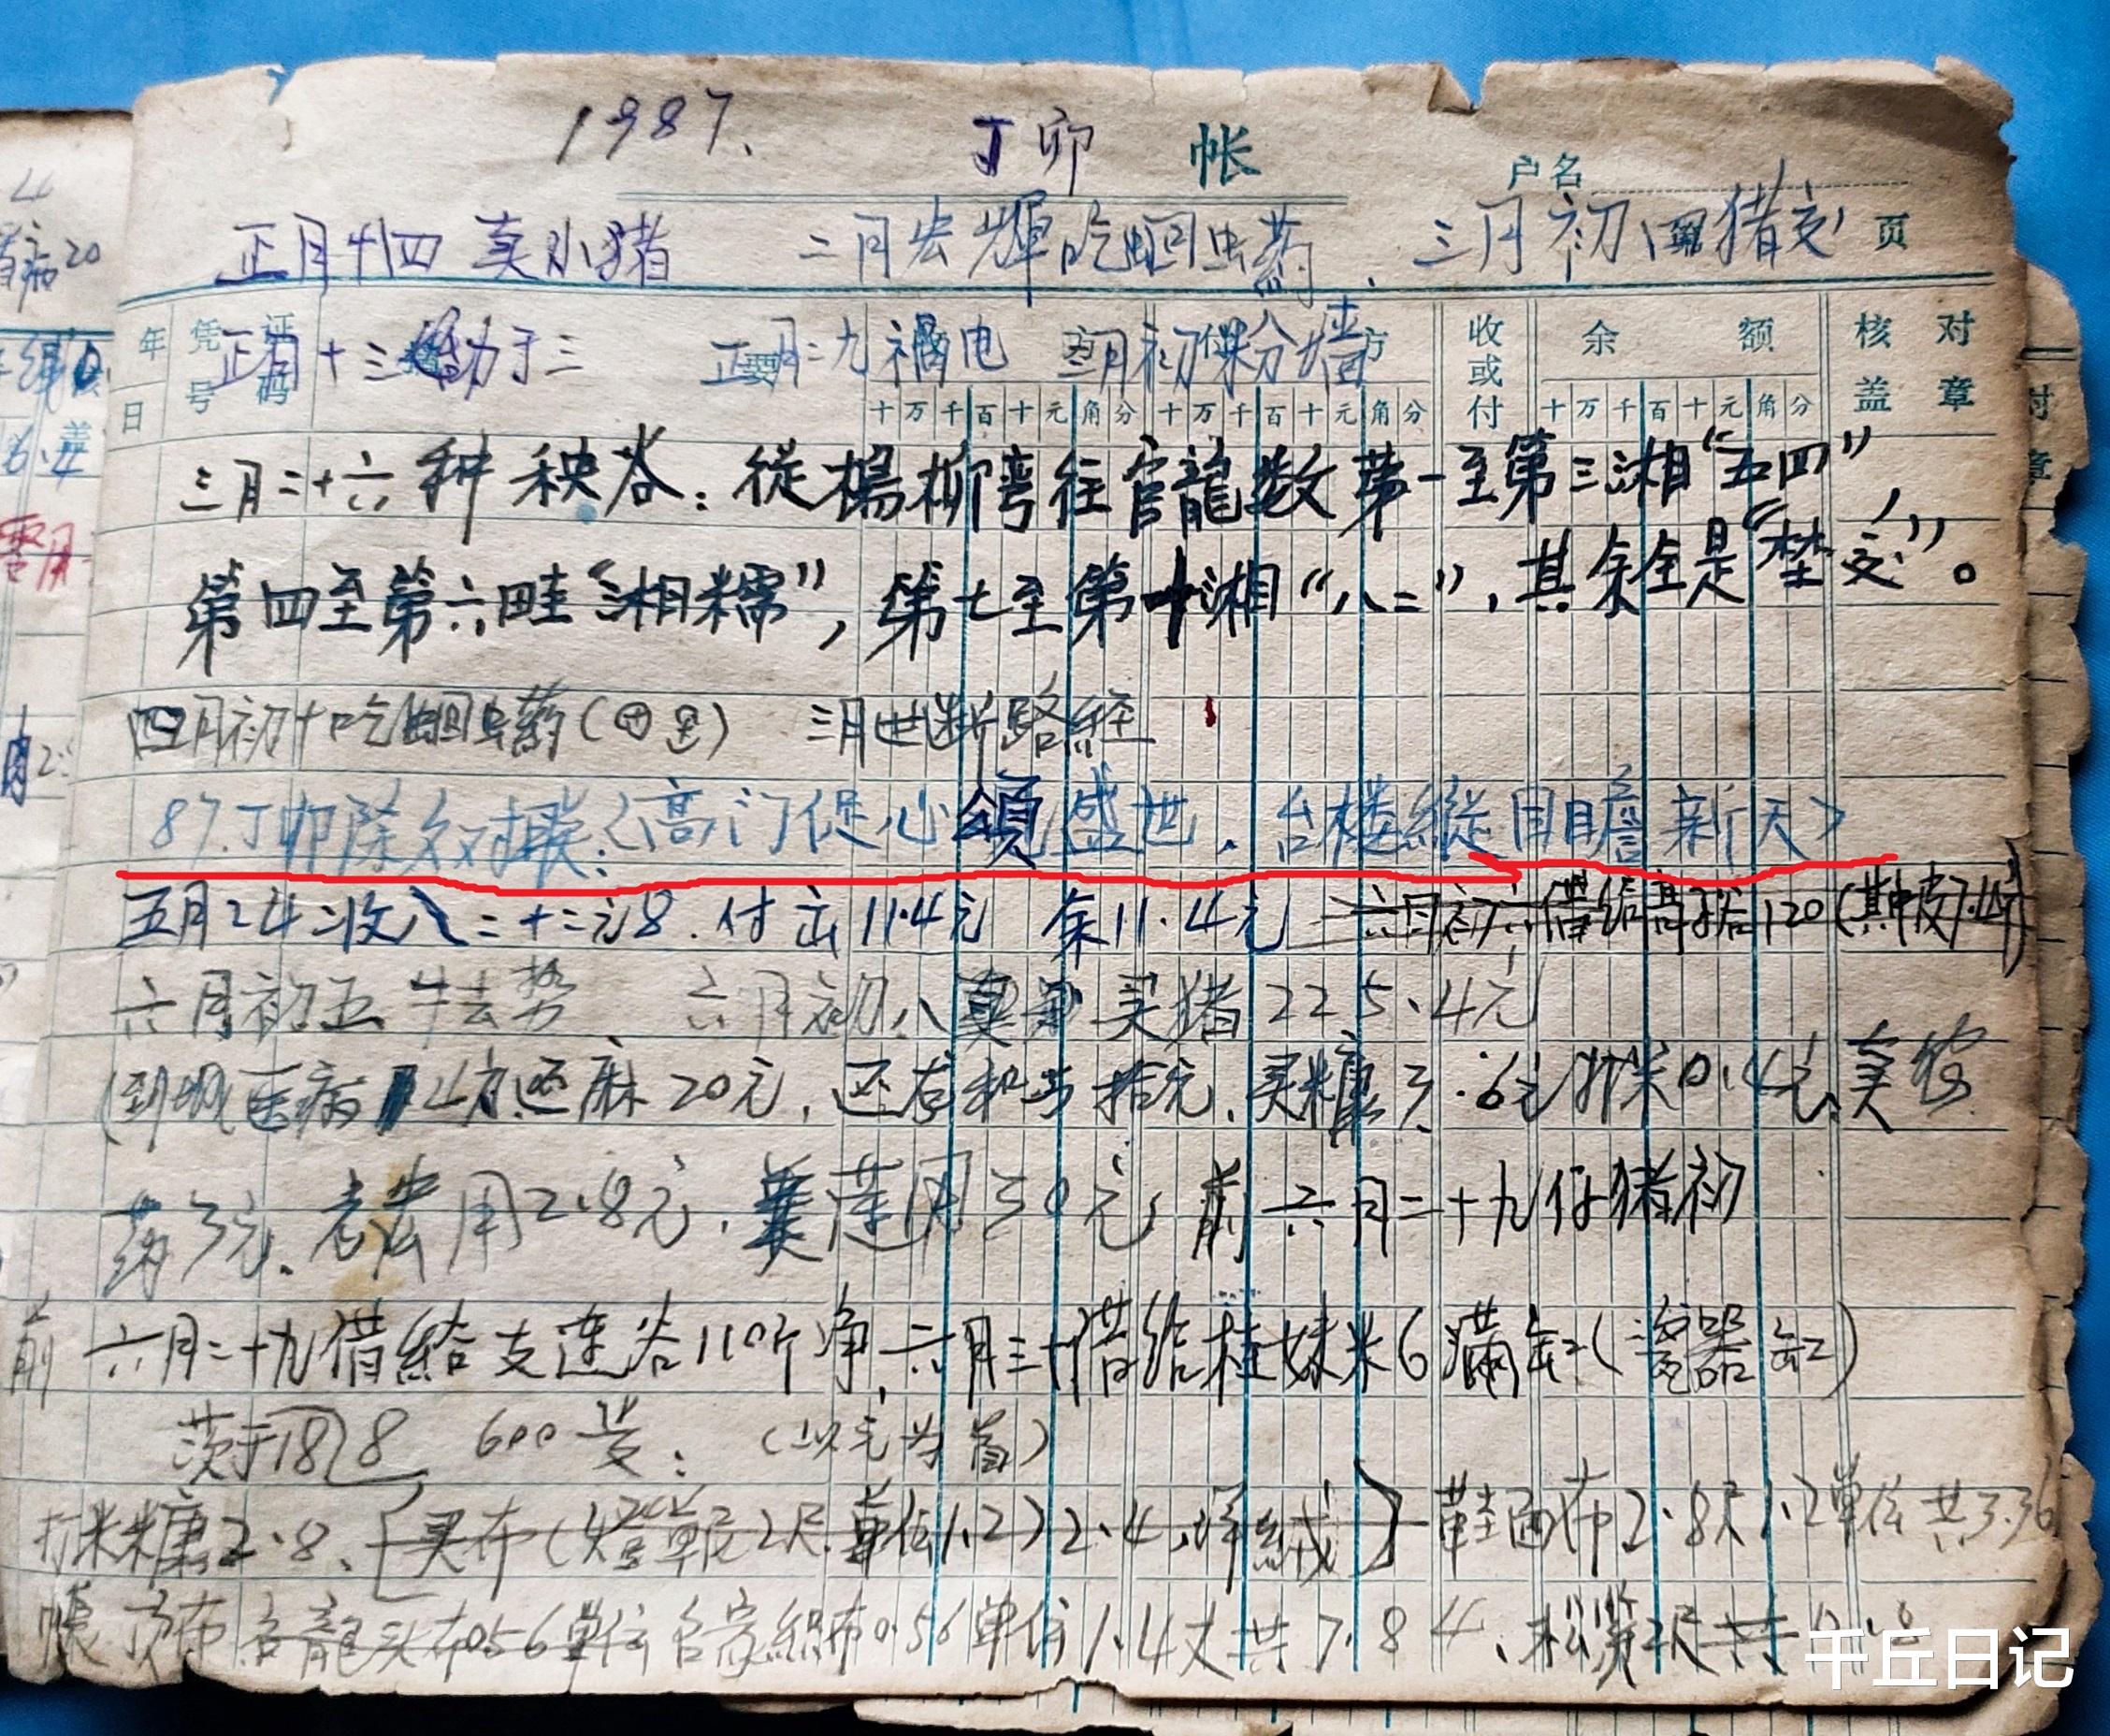 1987. 丁卯 帐
户名
正月十四 卖小猪 二月宏輝吃蛔虫药. 三月初四猪交 页
年 凭证 收 余额 核对
正月十三 于三 正月二九 电 初 分墙 方
日 号码 或付 盖章
十万千百十元角分 十万千百十元角分 十万千百十元角分
三月二十六 种秧谷：從楊柳湾往官龍数第一至第三湘“五四”
第四至第六畦“湘糯”，第七至第十湘“八二”，其余全是“桂交”。
四月初十吃蛔虫药( ) 三月 断路經
87.丁卯除夕对联：〈高门促心頌盛世．台楼縱目瞻新天〉
五月24 收入二十二元8. 付出11.4元 余11.4元 六月初六借给高 120(其中皮
六月初五 牛去势 六月初八 买猪225.4元
(到城医病 还麻20元，还 拾元，买糠3.6元 打米0.4元 卖
药3元．老宏用2.8元． 莲用50元, 前六月二十九仔猪初
前 六月二十九借給支莲谷110斤净，六月三十借给桂妹米6满缸(瓷器缸)
茨于18 8 600 (以元为 )
打米糠2.8、[买布(灯草 2尺 单位1.2)2.4, 絨] 鞋面布2.8尺1.2单位共3.36
帳 布 龍头布0.56单位 家織布0.56单位1.4丈共7.84、松 2尺共
千丘日记